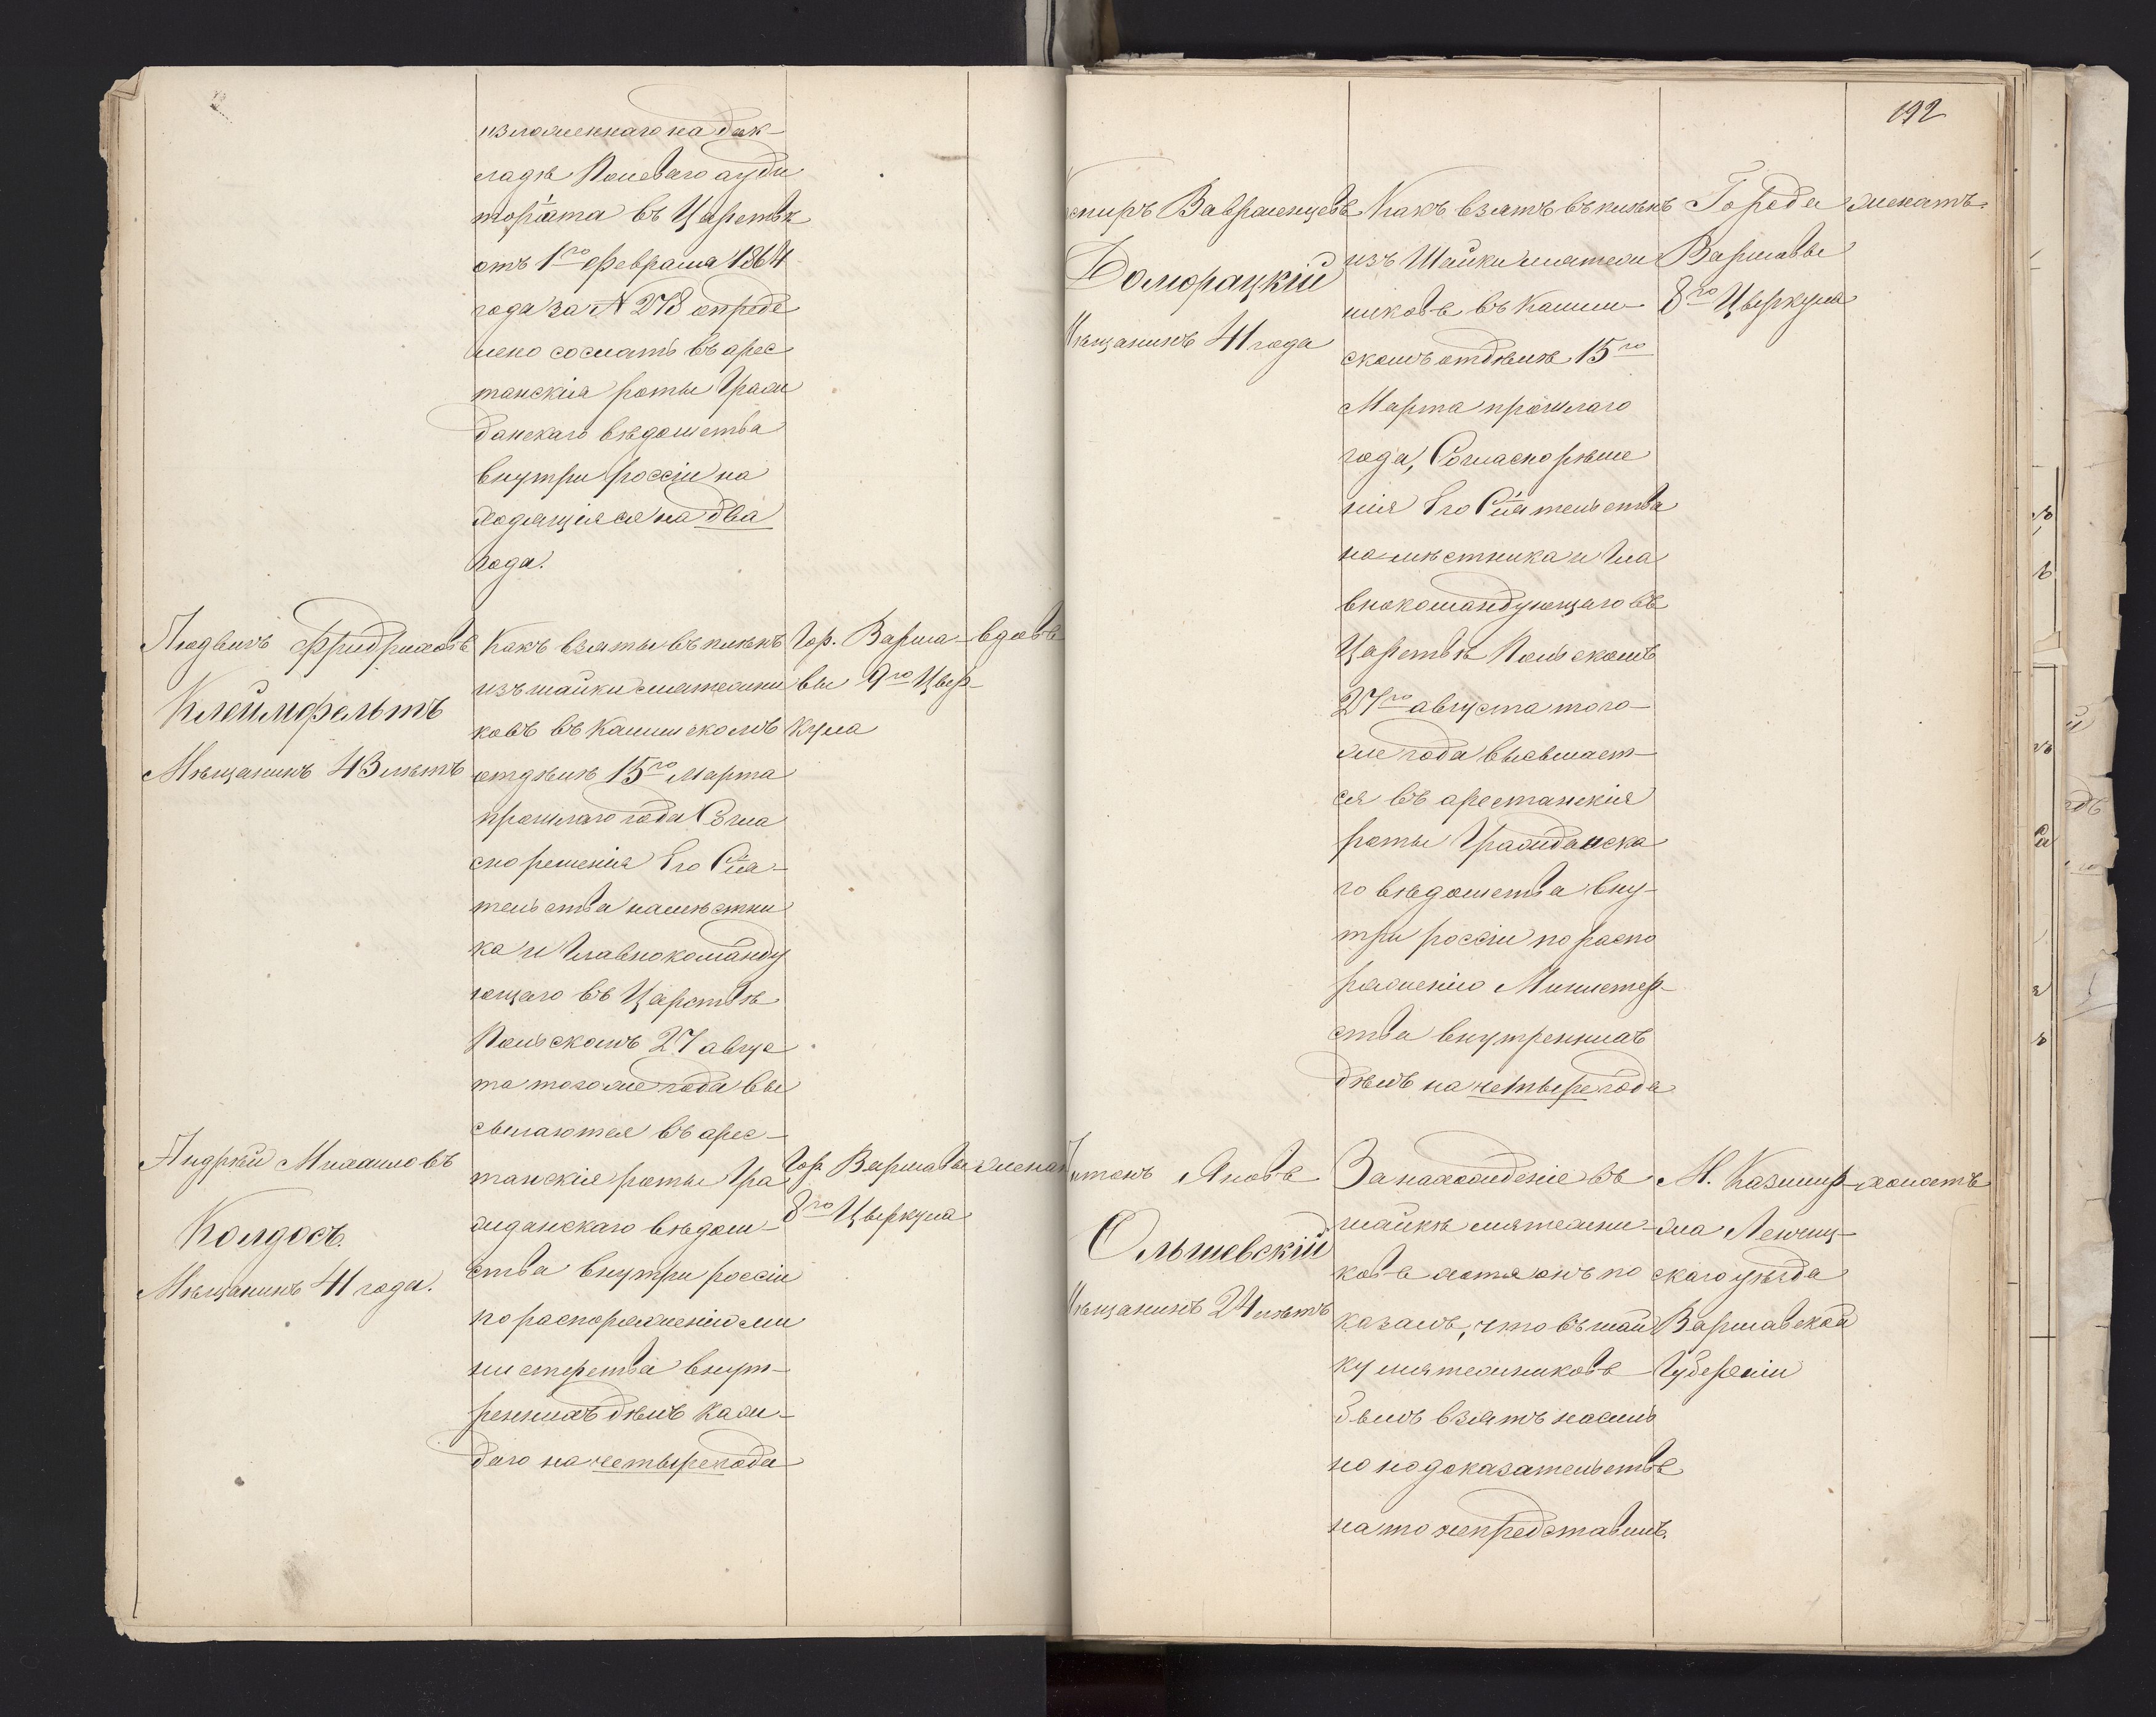 изложеннаго на док-
ладѣ Полеваго ауди
торіата въ Царствѣ
отъ 1го февраля 1864
года за N 278 опреде
лено сослать въ арес
танскія роты Граж
данскаго вѣдомства
внутри россіи на
ходящіяся на два
года.
Людвигъ Фридриховъ
Клеймфельтъ
Мѣщанинъ 43 лѣтъ
Какъ взяты въ плѣнъ
изъ шайки мятежни
ковъ въ Калишскомъ
отдѣлѣ 15го Марта
прошлаго года Согла
сно решенія Его Сія-
тельства намѣстни
ка и Главнокоманду
ющаго въ Царствѣ
Польскомъ 27 авгус
та того же года вы
сылаются въ арес-
танскія роты Гра
жданскаго вѣдом-
ства внутри россіи
по распоряженію ми
нистерства внут-
реннихъ дѣлъ каж-
даго на четыре года
Гор. Варша-
вы 9го Цыр-
кула
вдовъ
Андрѣй Михаиловъ
Колдосъ.
Мѣщанинъ 41 года.
Гор. Варшавы
8го Цыркула
женат
192
Вавраенцевъ
Доморацкій
Мѣщанинъ 41 года
Какъ взятъ въ плѣнъ
изъ Шайки мятеж
никовъ въ Калиш-
скомъ отдѣлѣ 15го
Марта прошлаго
года, Согласно рѣше
нія Его Сіятельства
намѣстника и Гла
внокомандующаго въ
Царствѣ Польскомъ
27го августа того-
же года высылает-
ся въ арестанскія
роты Гражданска
го вѣдомства вну-
три россіи по распо
ряженію Министер-
ства внутреннихъ
дѣлъ на четыре года
Города
Варшавы
8го Цыркула
женатъ.
Антонъ Яновъ
Ольшевскій
Мѣщанинъ 24 лѣтъ
За нахожденіе въ
шайкѣ мятежни-
ковъ хотя онъ по
казалъ, что въ шай
ку мятежниковъ
былъ взятъ насиль
но но доказательствъ
на то непредставилъ.
М. Казимир-
жа Ленчиц-
скаго уѣзда
Варшавской
Губерніи
холостъ